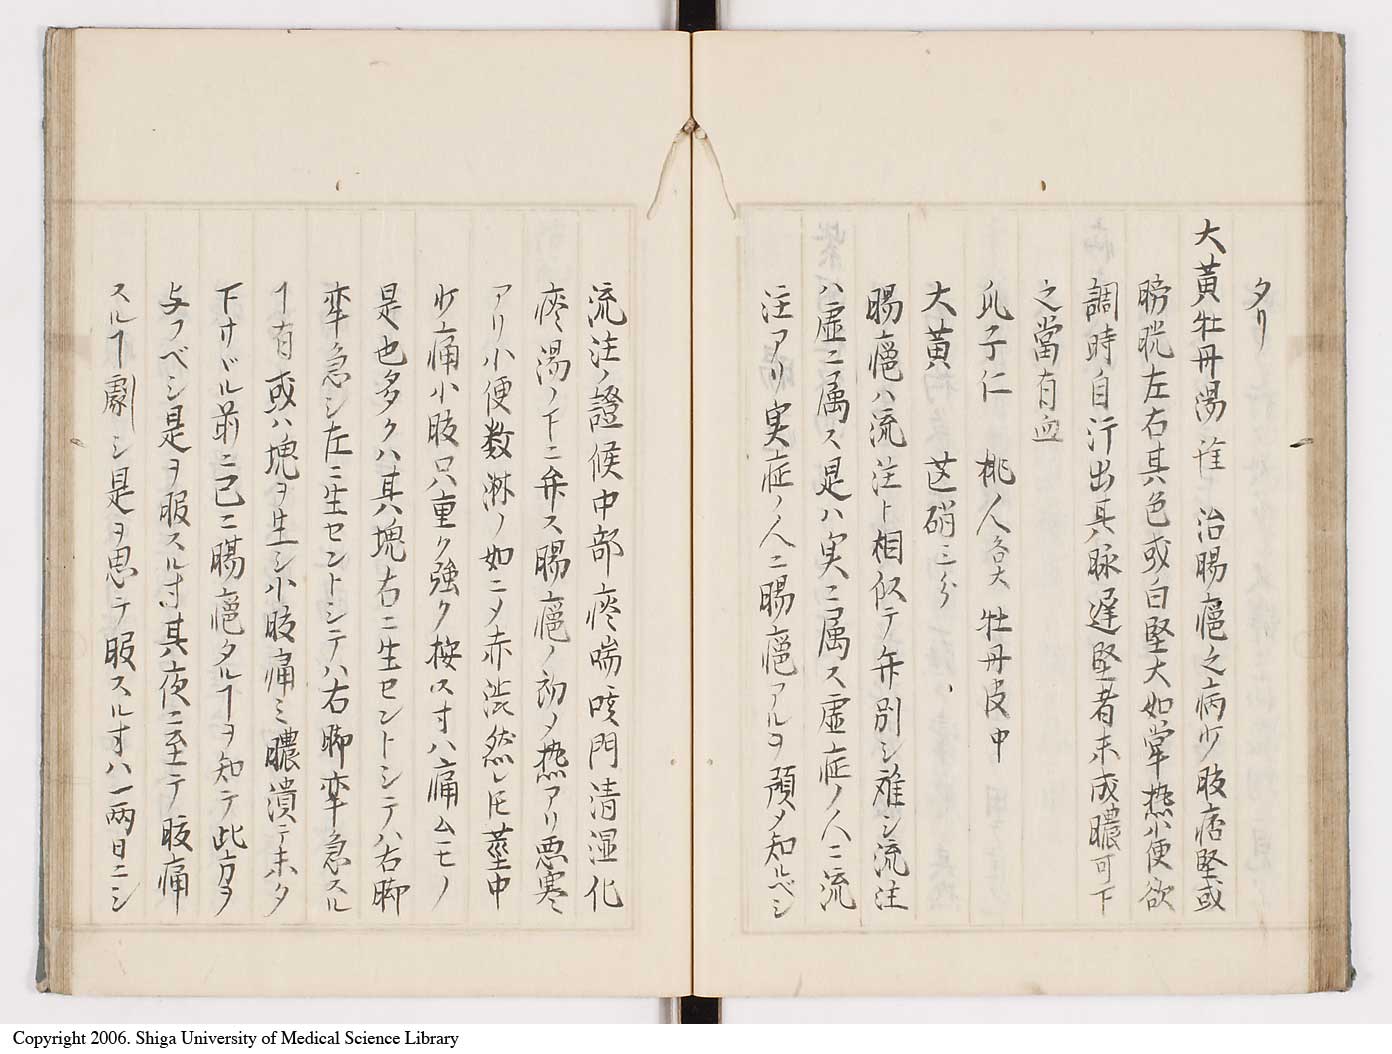 タリ
大黄牡丹湯 治腸癰之病少肢痞堅或
膀胱左右其色或白堅大如掌熱小便欲
調時自汗出其脉遅堅者未成膿可下
之當有血
瓜子仁 桃人各大 牡丹皮中
大黄 芒硝三分
腸癰ハ流注ト相似テ弁別シ難シ流注
ハ虚ニ属ス是ハ実ニ属ス虚症ノ人ニ流
注アリ実症ノ人ニ腸癰アルヲ預メ知ルベシ
流注ノ證候中部痰喘咳門清湿化
痰湯ノ下ニ弁ス腸癰ノ初メ熱アリ悪寒
アリ小便数淋ノ如ニメ赤渋然レ𪜈莖中
少痛小肢只重ク強ク按ス寸ハ痛ムモノ
是也多クハ其ハ塊右ニ生セントシテハ右脚
牽急シ左ニ生セントシテハ右脚牽急スル
ヿ有或ハ塊ヲ生シ小肢痛ミ膿潰テ未タ
下サヾル前ニ已ニ腸癰タルヿヲ知テ此方ヲ
与フベシ是ヲ服スル寸其夜ニ至テ肢痛
スルヿ劇シ是ヲ思テ服スル寸ハ一両日ニシ
Copyright 2006. Shiga University of Medical Science Library